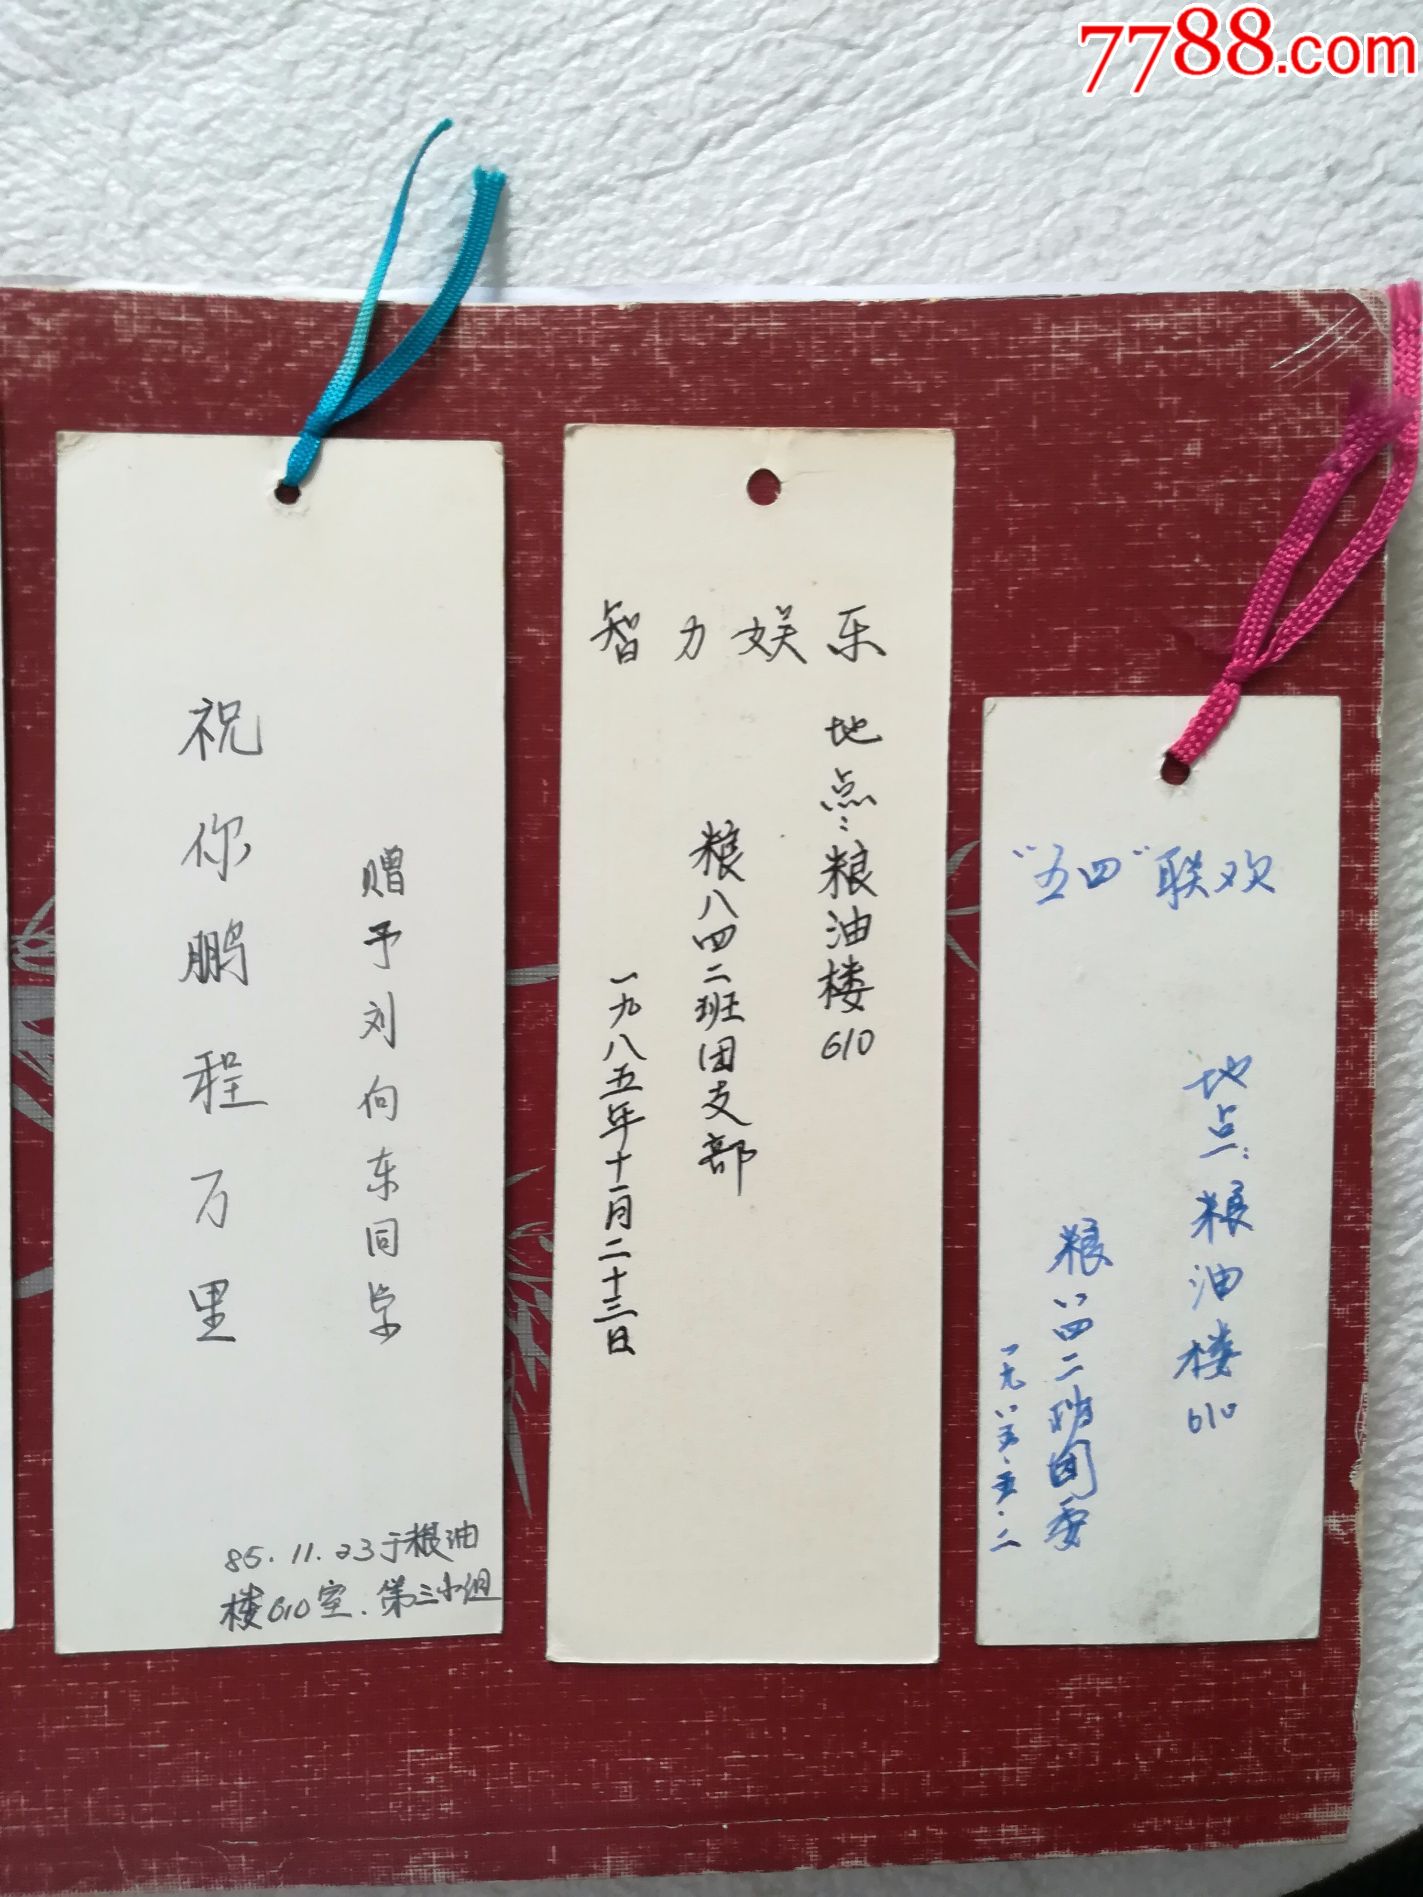 7788.com
赠予刘向东同学
祝你鹏程万里
85.11.23于粮油
楼610室.第三小组
智力娱乐
地点:粮油楼610
粮八四二班团支部
一九八五年十一月二十三日
“五四”联欢
地点:粮油楼610
粮八四二班团委
一九八五.五.二